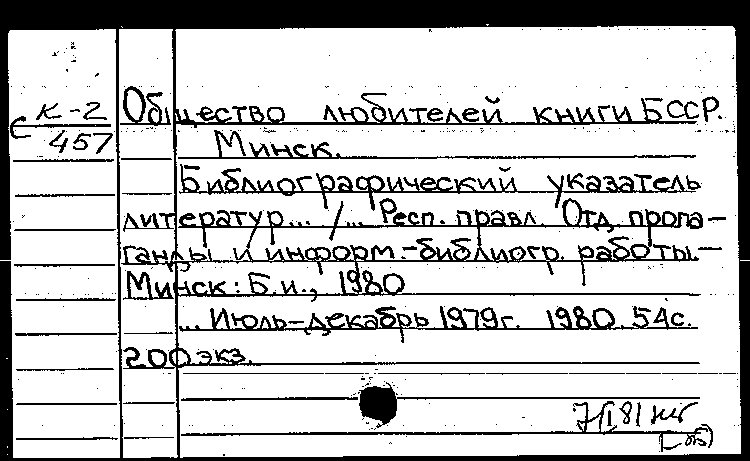 К-2
С 457
Общество любителей книги БССР.
Минск.
Библиографический указатель
литератур... /... Респ. правл. Отд. пропа-
ганды и информ.-библиогр. работы.-
Минск: Б.и., 1980
... Июль-декабрь 1979г. 1980. 54с.
200 экз.
7/I 81